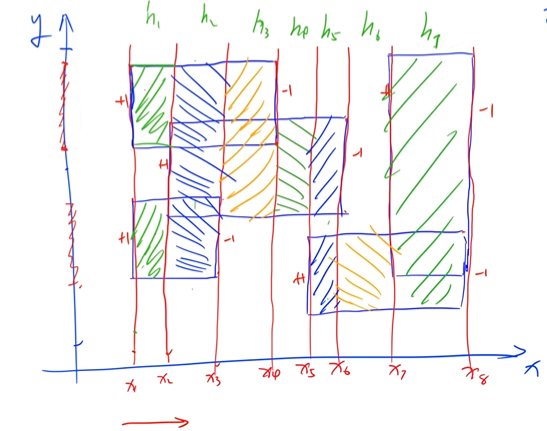 h₁ h₂ h₃ h₄ h₅ h₆ h₇
y
+1 -1 -1
+1 -1
+1 -1
+1 -1
x₁ x₂ x₃ x₄ x₅ x₆ x₇ x₈ x